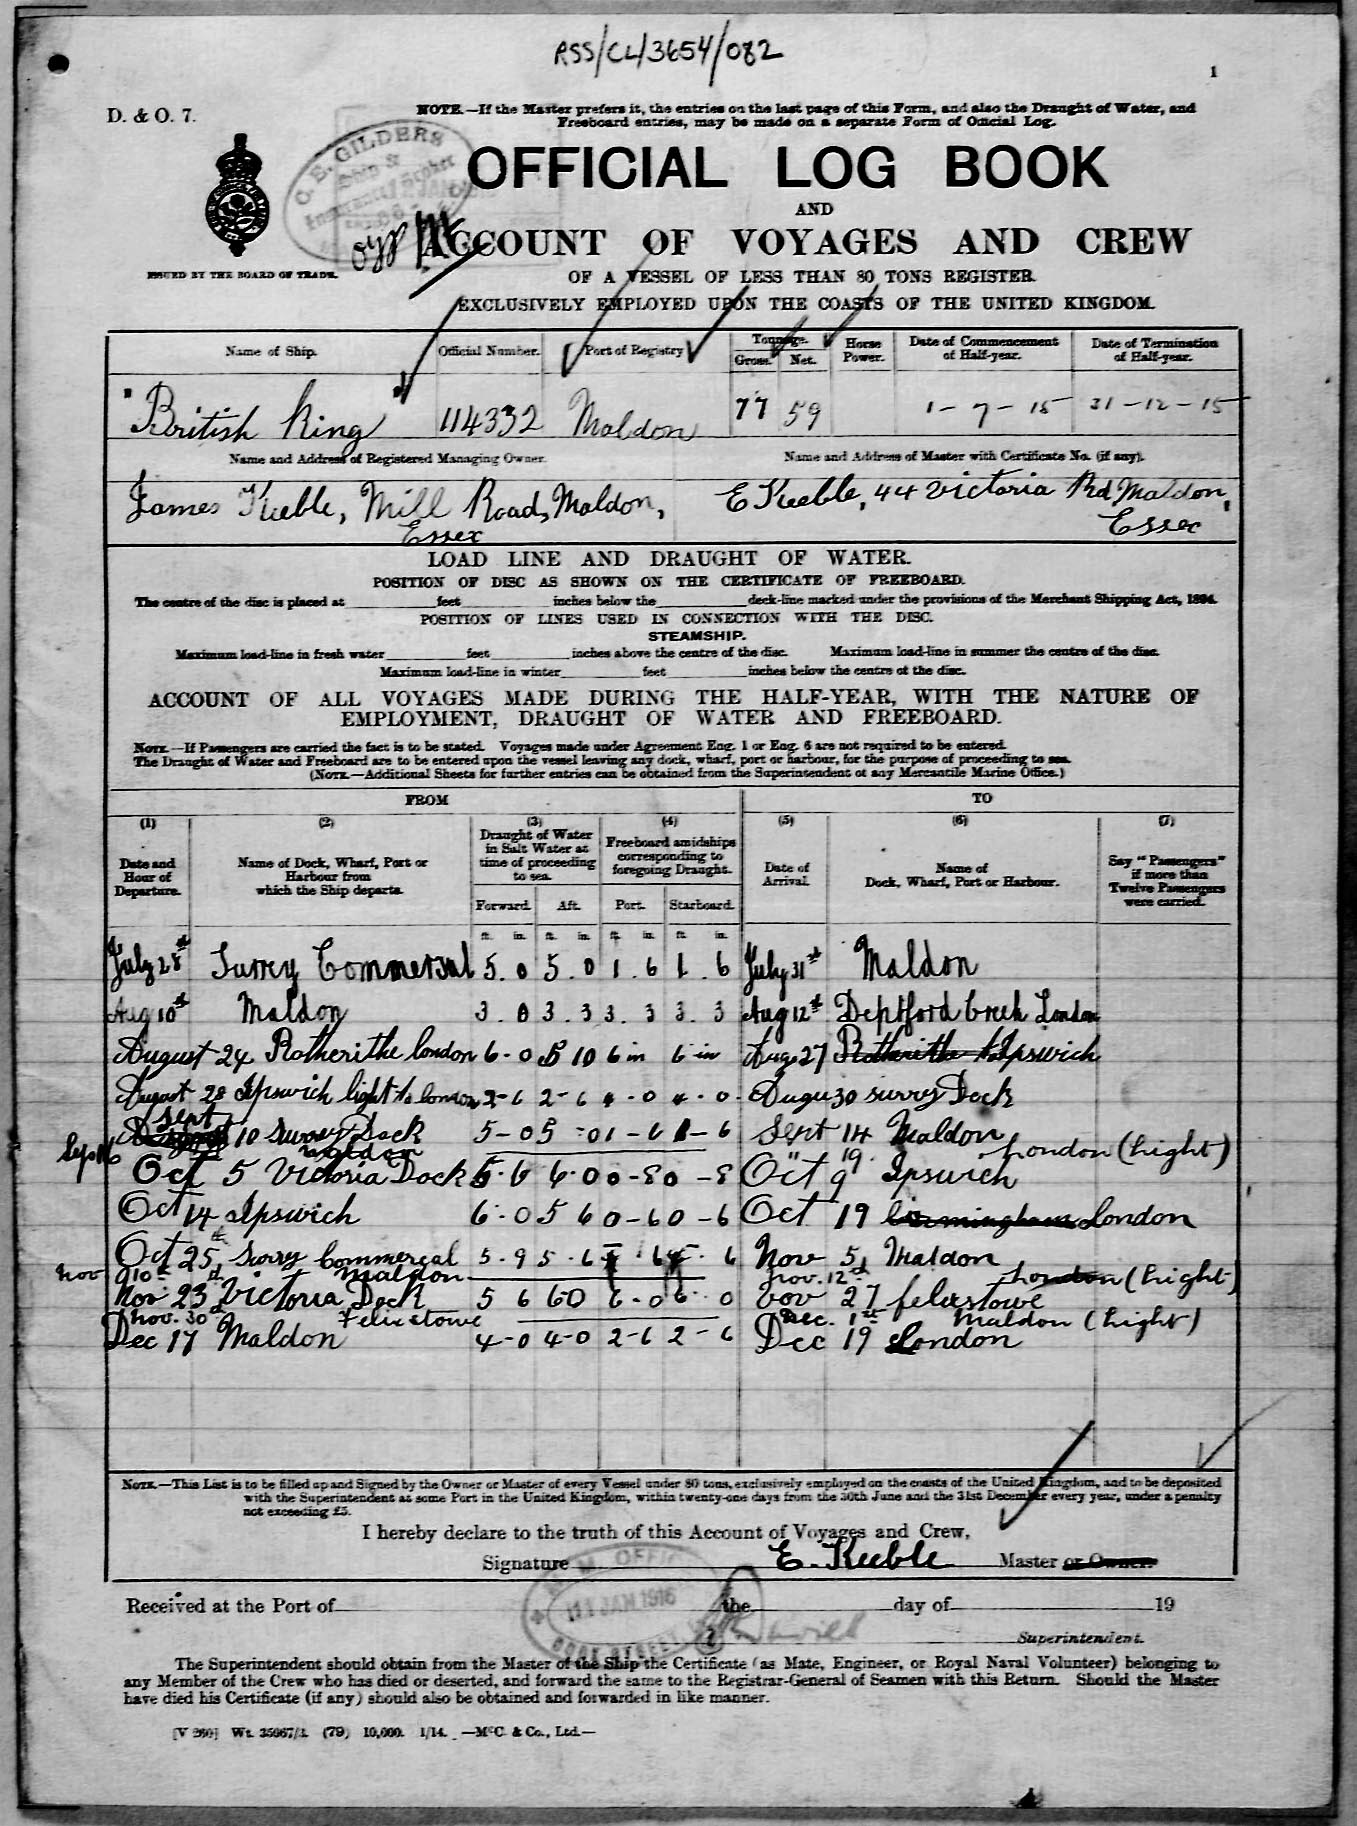 RSS/CL/3654/082
1
D. & O. 7.
NOTE.—If the Master prefers it, the entries on the last page of this Form, and also the Draught of Water, and
Freeboard entries, may be made on a separate Form of Official Log.
O. E. GILDERS
Ship
OFFICIAL LOG BOOK
AND
ACCOUNT OF VOYAGES AND CREW
ISSUED BY THE BOARD OF TRADE.
OF A VESSEL OF LESS THAN 80 TONS REGISTER
EXCLUSIVELY EMPLOYED UPON THE COASTS OF THE UNITED KINGDOM.
Name of Ship. Official Number. Port of Registry Tonnage. Horse Power. Date of Commencement of Half-year. Date of Termination of Half-year.
Gross. Net.
"British King" 114332 Maldon 77 59 1-7-15 31-12-15
Name and Address of Registered Managing Owner. Name and Address of Master with Certificate No. (if any).
James Keeble, Mill Road, Maldon, E Keeble, 44 Victoria Rd Maldon,
Essex Essex
LOAD LINE AND DRAUGHT OF WATER.
POSITION OF DISC AS SHOWN ON THE CERTIFICATE OF FREEBOARD.
The centre of the disc is placed at feet inches below the deck-line marked under the provisions of the Merchant Shipping Act, 1894.
POSITION OF LINES USED IN CONNECTION WITH THE DISC.
STEAMSHIP.
Maximum load-line in fresh water feet inches above the centre of the disc. Maximum load-line in summer the centre of the disc.
Maximum load-line in winter feet inches below the centre of the disc.
ACCOUNT OF ALL VOYAGES MADE DURING THE HALF-YEAR, WITH THE NATURE OF
EMPLOYMENT, DRAUGHT OF WATER AND FREEBOARD.
NOTE.—If Passengers are carried the fact is to be stated. Voyages made under Agreement Eng. 1 or Eng. 6 are not required to be entered.
The Draught of Water and Freeboard are to be entered upon the vessel leaving any dock, wharf, port or harbour, for the purpose of proceeding to sea.
(NOTE.—Additional Sheets for further entries can be obtained from the Superintendent of any Mercantile Marine Office.)
FROM TO
(1) (2) (3) (4) (5) (6) (7)
Date and Hour of Departure. Name of Dock, Wharf, Port or Harbour from which the Ship departs. Draught of Water in Salt Water at time of proceeding to sea. Freeboard amidships corresponding to foregoing Draught. Date of Arrival. Name of Dock, Wharf, Port or Harbour. Say "Passengers" if more than Twelve Passengers were carried.
Forward. Aft. Port. Starboard.
ft. in. ft. in. ft. in. ft. in.
July 28st Surrey Commersal 5.0 5.0 1.6 1.6 July 31st Maldon
Aug 10st Maldon 3.0 3.3 3.3 3.3 Aug 12st Deptford Creek London
August 24 Rotherithe london 6-0 5 10 6 in 6 in Aug 27 Rotherithe to Ipswich
August 28 Ipswich light to london 2-6 2-6 4-0 4-0 Augu 30 surrey Dock
Sept 10 Surrey Dock 5-0 5-0 1-6 1-6 Sept 14 Maldon
Sept 16 maldon 19 London (Light)
Oct 5 Victoria Dock 5-6 6-0 0-8 0-8 Oct 9 Ipswich
Oct 14 Ipswich 6-0 5 6 0-6 0-6 Oct 19 Birmingham London
Oct 25th Surry Commercal 5-9 5-6 6 6 Nov 5 Maldon
Nov 10th Maldon Nov. 12th London (Light)
Nov 23rd Victoria Dock 5 6 6 0 6-0 6 0 Nov 27 felixstowe
Nov. 30th Felixstowe Dec. 1st Maldon (Light)
Dec 17 Maldon 4-0 4-0 2-6 2-6 Dec 19 London
NOTE.—This List is to be filled up and Signed by the Owner or Master of every Vessel under 80 tons, exclusively employed on the coasts of the United Kingdom, and to be deposited
with the Superintendent at some Port in the United Kingdom, within twenty-one days from the 30th June and the 31st December every year, under a penalty
not exceeding £5.
I hereby declare to the truth of this Account of Voyages and Crew,
Signature E. Keeble Master or Owner.
M. M. OFFICE
11 JAN 1916
DOCK STREET
Received at the Port of the day of 19
Superintendent.
The Superintendent should obtain from the Master of the Ship the Certificate (as Mate, Engineer, or Royal Naval Volunteer) belonging to
any Member of the Crew who has died or deserted, and forward the same to the Registrar-General of Seamen with this Return. Should the Master
have died his Certificate (if any) should also be obtained and forwarded in like manner.
[V 260] Wt. 35067/3. (79) 10,000. 1/14. —McC. & Co., Ltd.—